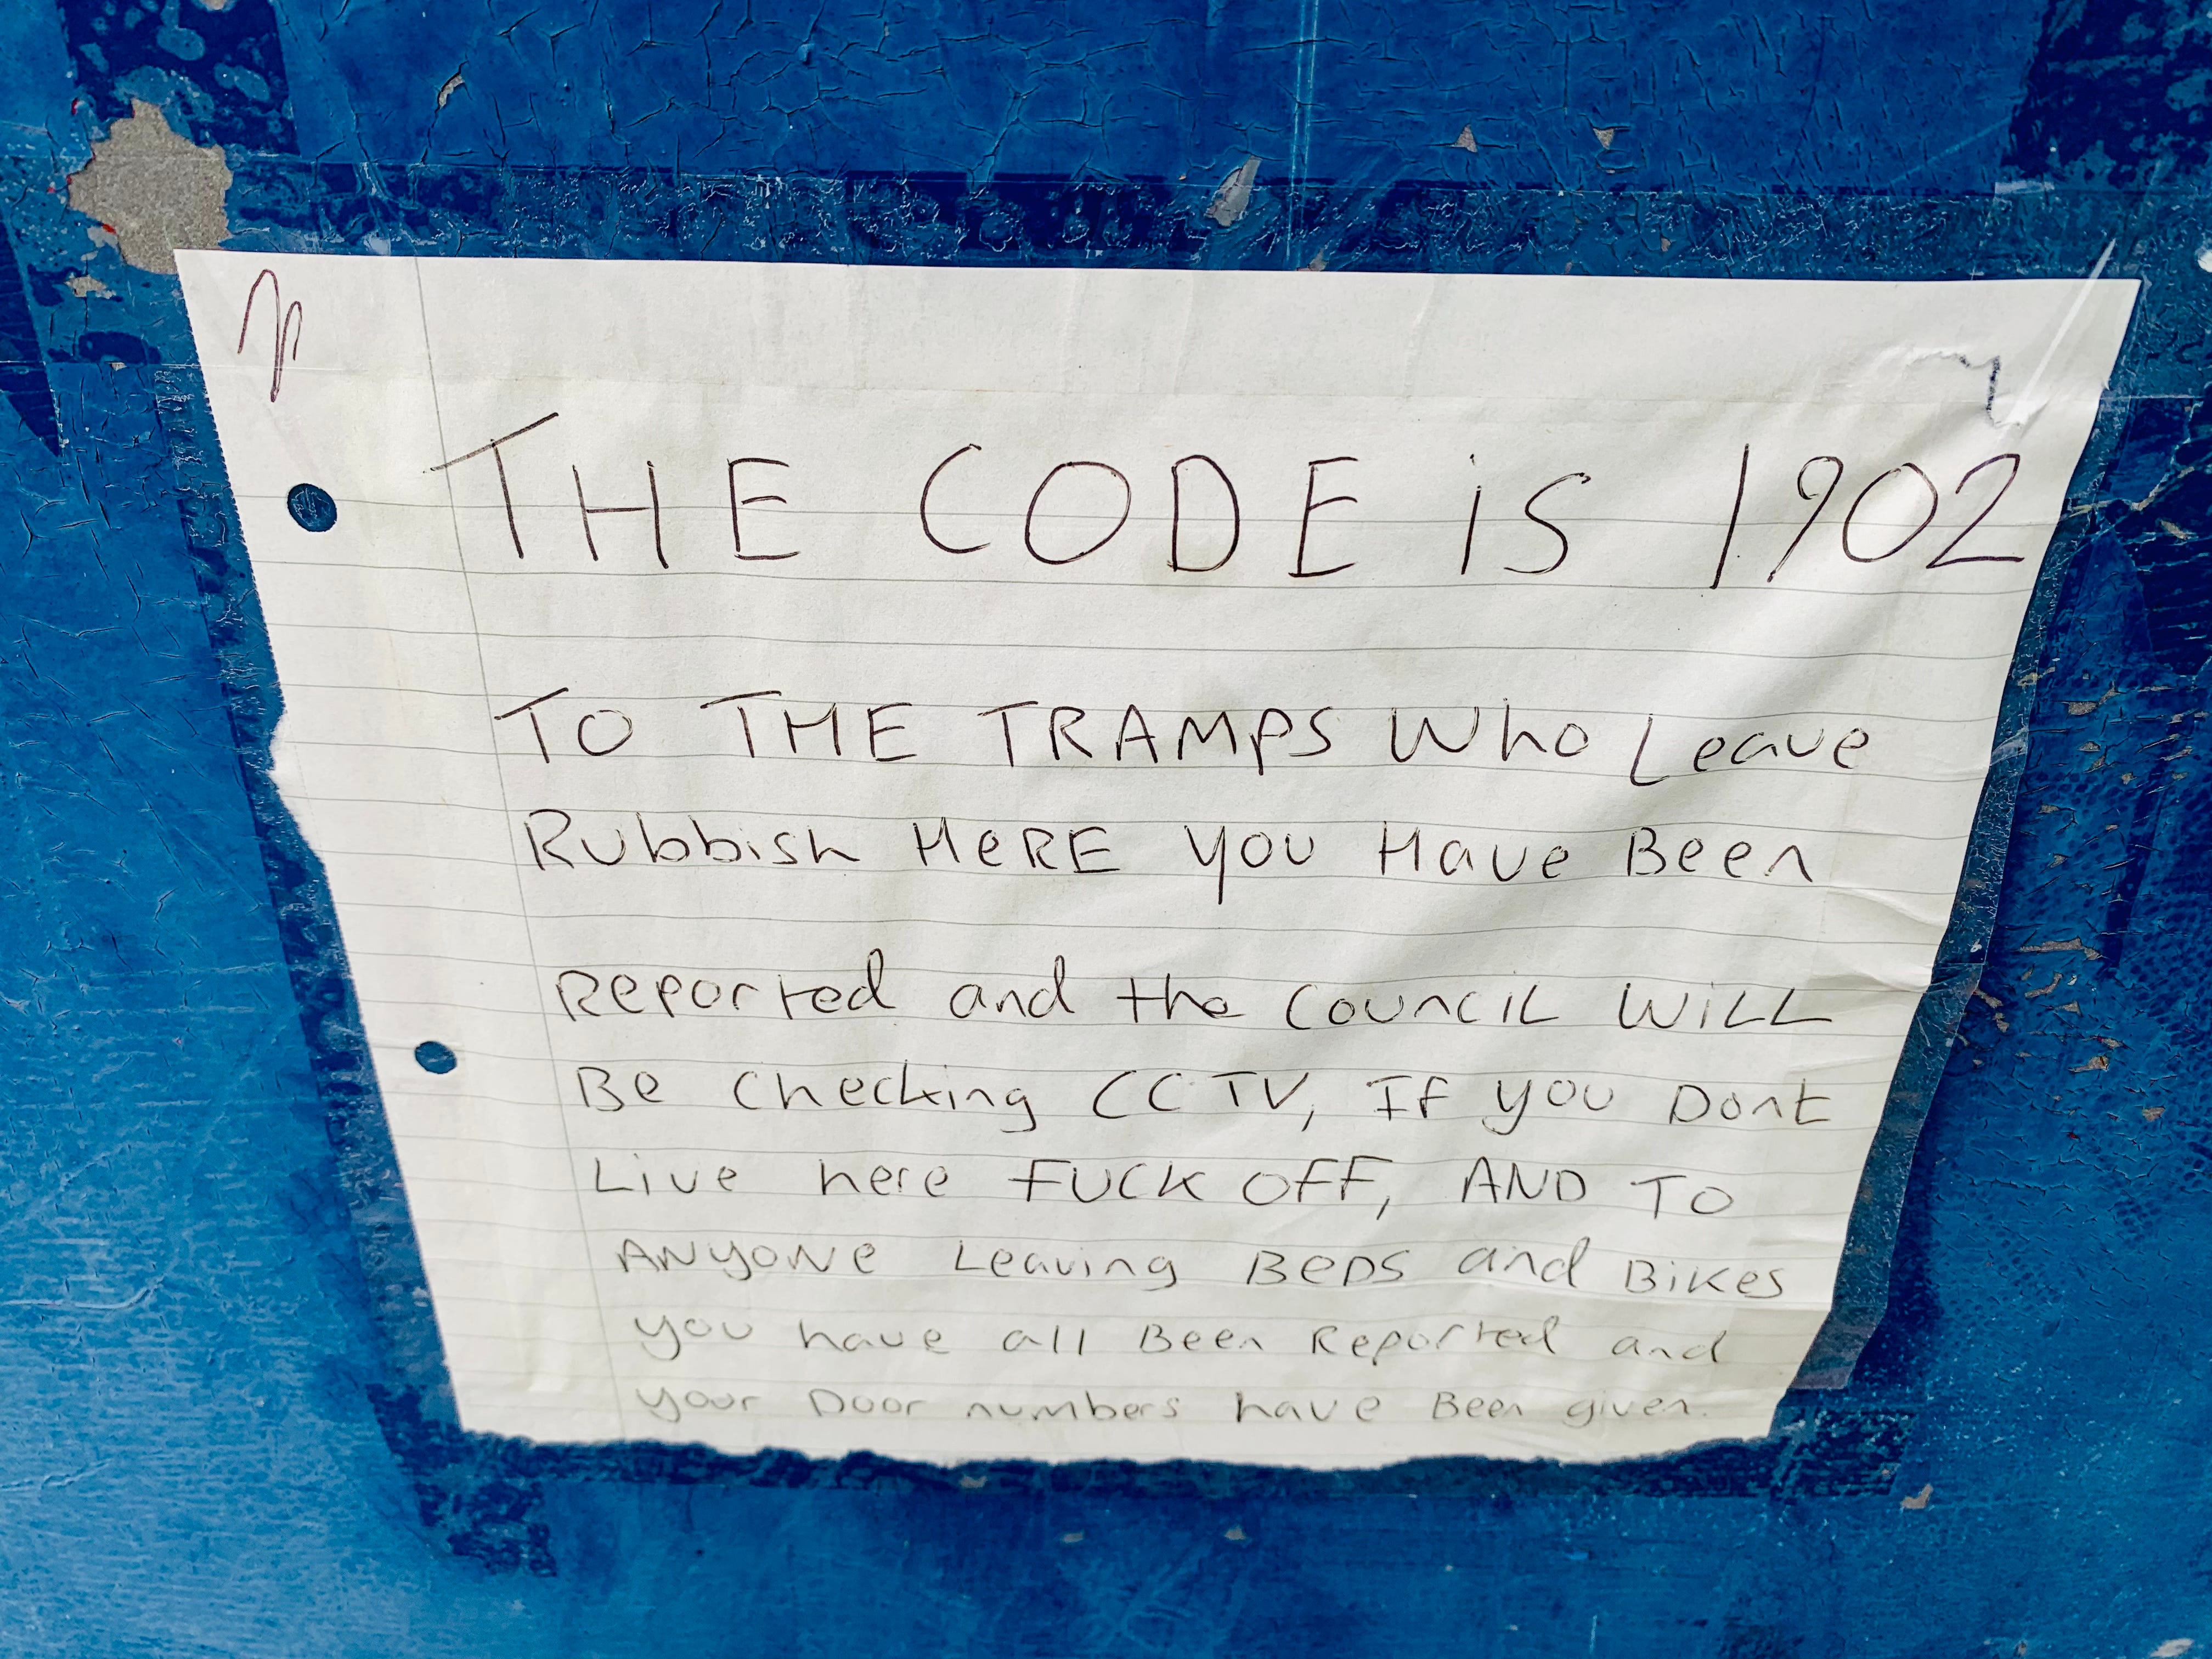 THE CODE iS 1902
TO THE TRAMPS Who Leave
Rubbish HeRE you Have Been
Reported and the COUNCIL WiLL
Be checking CCTV, IF you Dont
Live here FUCK OFF, AND TO
ANyONe Leaving BeDS and BiKes
you have all Been Reported and
your Door numbers have Been given.